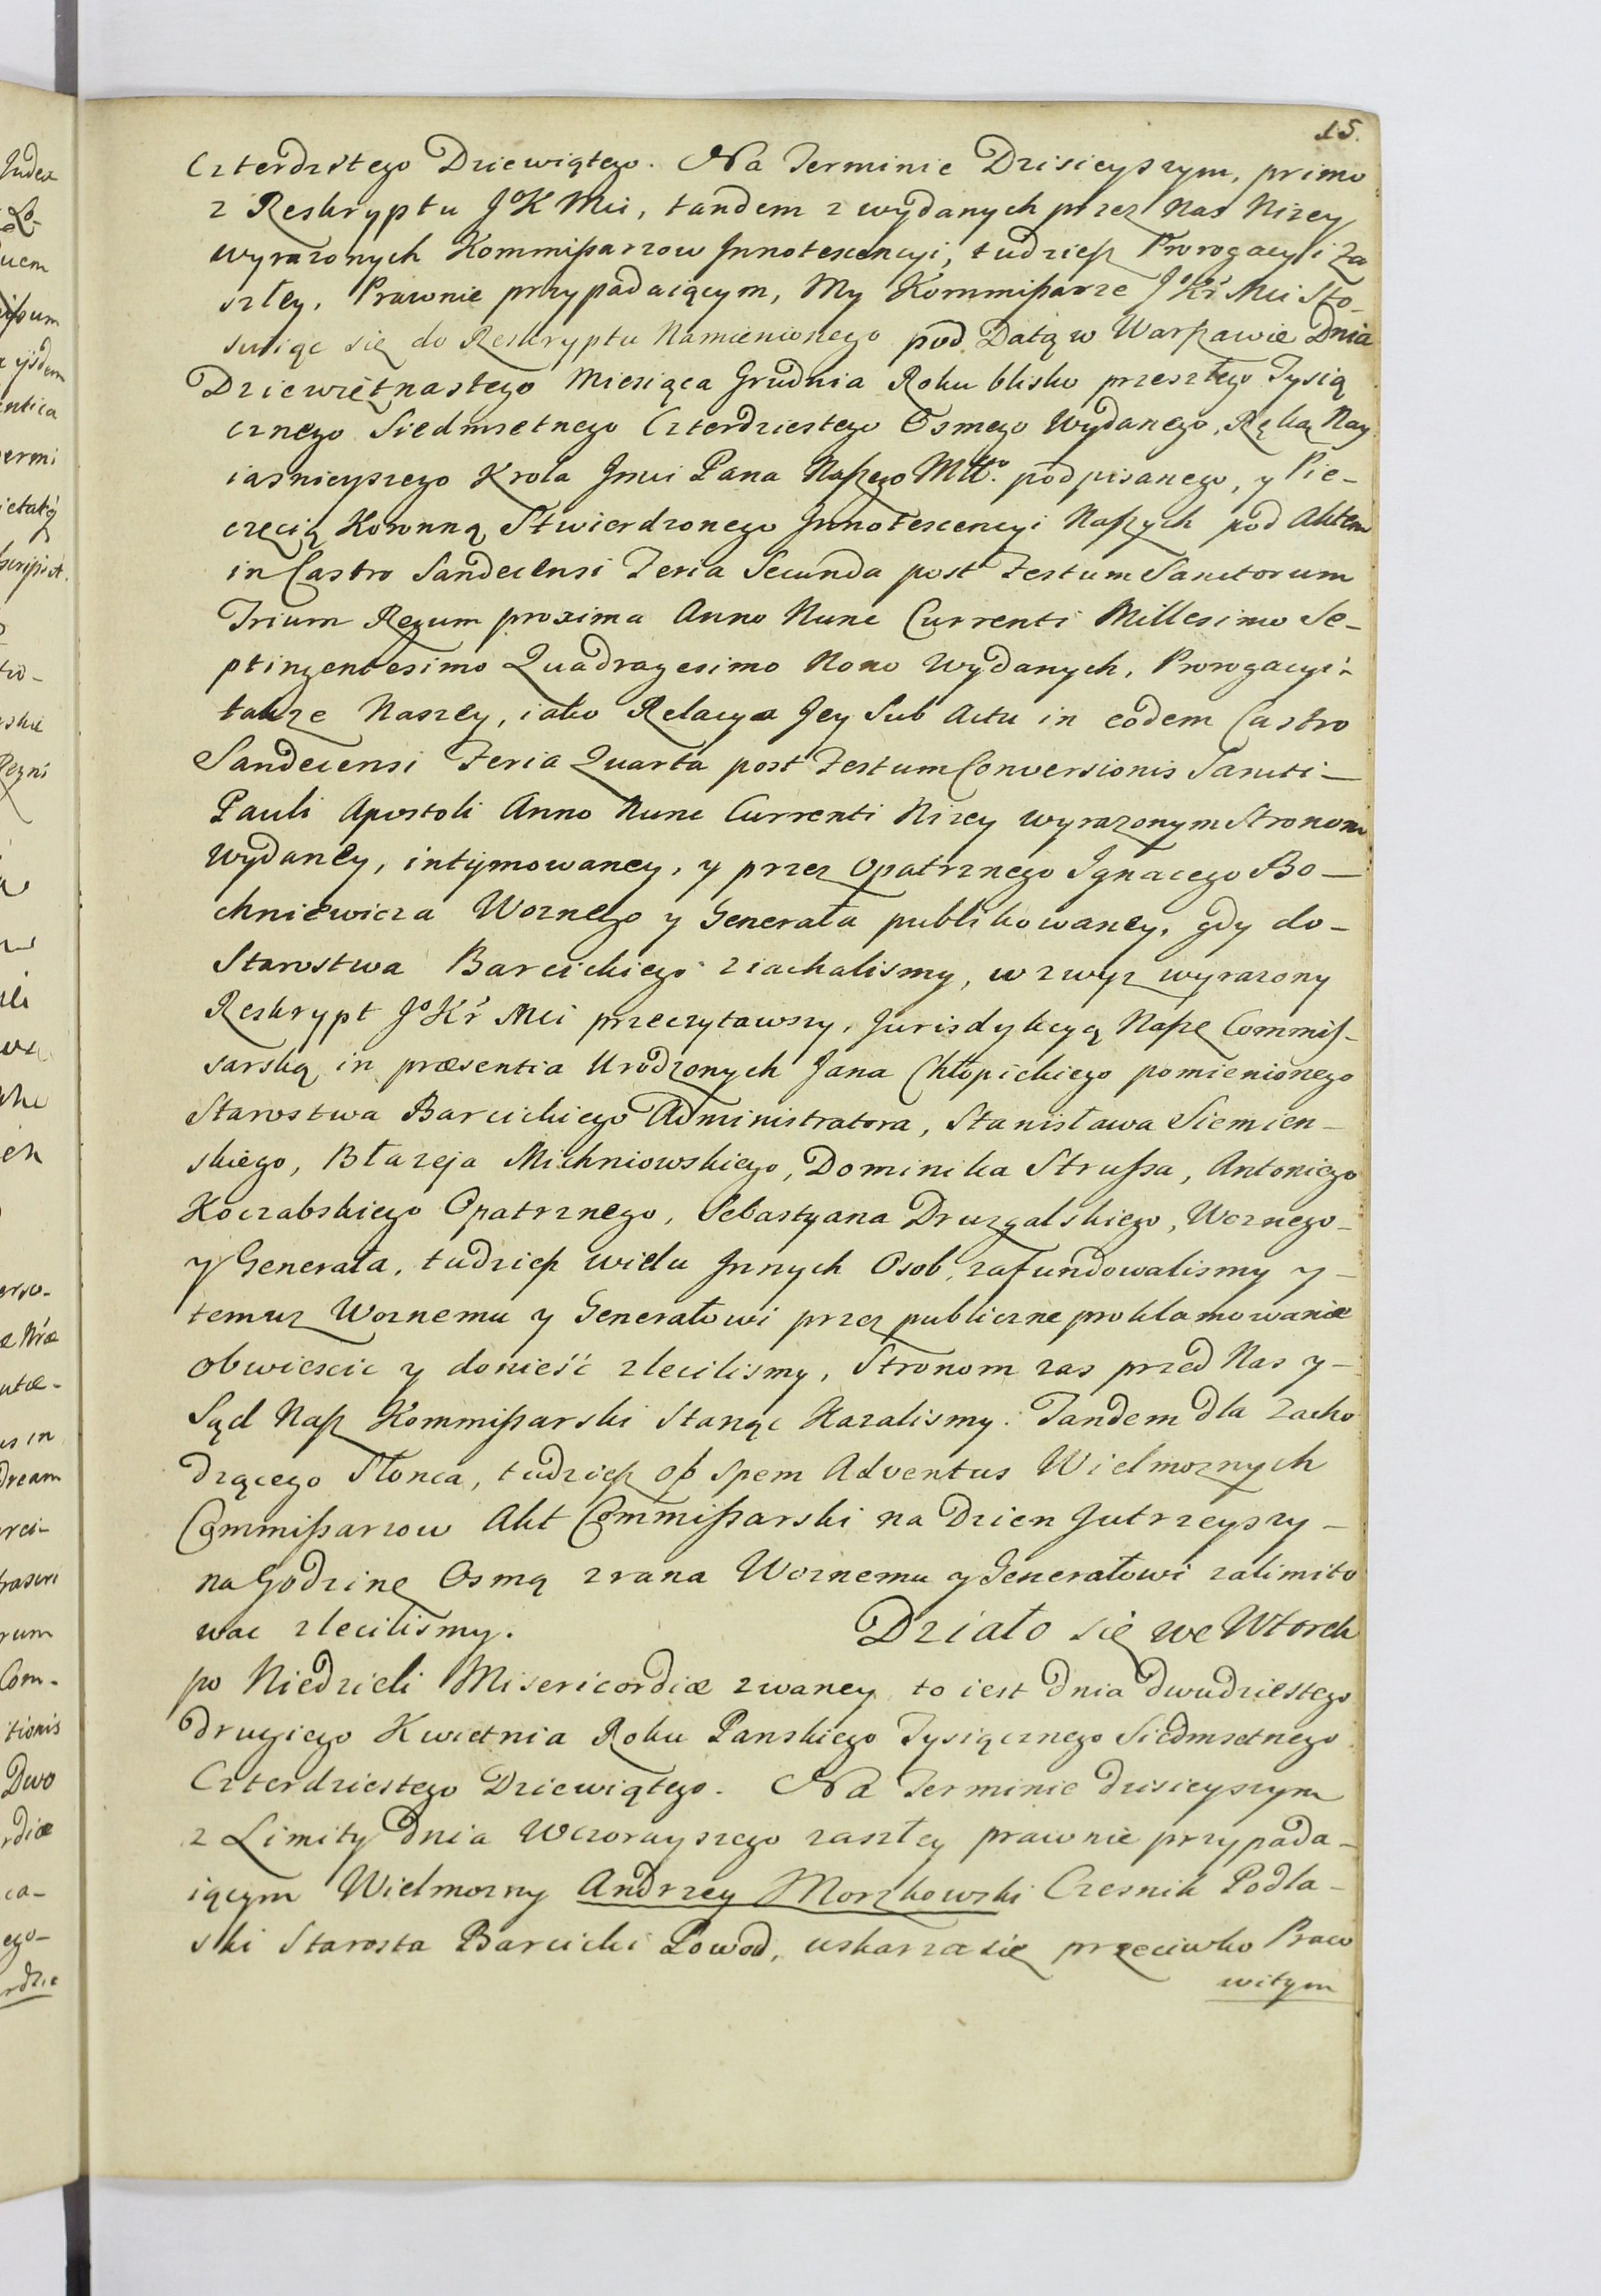 15.
Czterdzstego Dziewiątego. Na Terminie Dzisieyszym, primo
z Reskryptu JoK Mci, tandem z wydanych przez Nas Nizey
wyrazonych Kommißarzow Innotescencyi, tudzieß Prorogacyi Za
szłey, Prawnie przypadaiącym, My Kommißarze JoKr Mci Sto-
suiąc się do Reskryptu Namienionego pod Datą w Warßawie Dnia
Dziewiętnastego Miesiąca Grudnia Roku blisko przeszłego Tysią
cznego Siedmsetnego Czterdziestego Osmego Wydanego, Ręką Nay
iasnieyszego Krola Jmci Pana Naßego Mttō. podpisanego, y Pie-
częcią Koronną Stwierdzonego Innotescencyi Naßych pod Aktem
in Castro Sandecensi Feria Secunda post Festum Sanctorum
Trium Regum proxima Anno Nunc Currenti Millesimo Se-
ptingentesimo Quadragesimo Nono Wydanych, Prorogacyi-
takze Naszey, iako Relacya Jey Sub Actu in eodem Castro
Sandecensi Feria Quarta post Festum Conversionis Sancti-
Pauli Apostoli Anno Nunc Currenti Nizey wyrazonym Stronom
Wydaney, intymowaney, y przez Opatrznego Ignacego Bo-
chniewicza Woznego y Generała publikowaney, gdy do-
Starostwa Barcickiego ziachalismy, wzwyz wyrazony
Reskrypt JoKr Mci przeczytawszy, Jurisdykcyą Naßę Commiß-
sarską in præsentia Urodzonych Jana Chłopickiego pomienionego
Starostwa Barcickiego Administratora, Stanisława Siemien-
skiego, Błazeja Michniowskiego, Dominika Strußa, Antoniego
Koczabskiego Opatrznego, Sebastyana Druzgalskiego, Woznego-
y Generała, tudzieß wielu Innych Osob, zafundowalismy y-
temuz Woznemu y Generałowi przez publiczne proklamowanie
obwiescic y donieść zlecilismy, Stronom zas przed Nas y-
Sąd Naß Kommißarski Stanąc Kazalismy. Tandem dla Zacho
dzącego Słonca, tudzieß ob spem Adventus Wielmoznych
Commißarzow Akt Commißarski na Dzien Jutrzeyszy-
na Godzinę Osmą zrana Woznemu y Generałowi zalimito
wac zlecilismy. Działo się we Wtorek
po Niedzieli Misericordiæ zwaney to iest dnia dwudziestego
drugiego Kwietnia Roku Panskiego Tysiącznego Siedmsetnego
Czterdziestego Dziewiątego. Na Terminie dzisieyszym
z Limity dnia Wczorayszego zaszłey prawnie przypada-
iącym Wielmozny Andrzey Morzkowski Czesnik Podla-
ski Starosta Barcicki Powod, uskarza się przeciwko Praco
witym